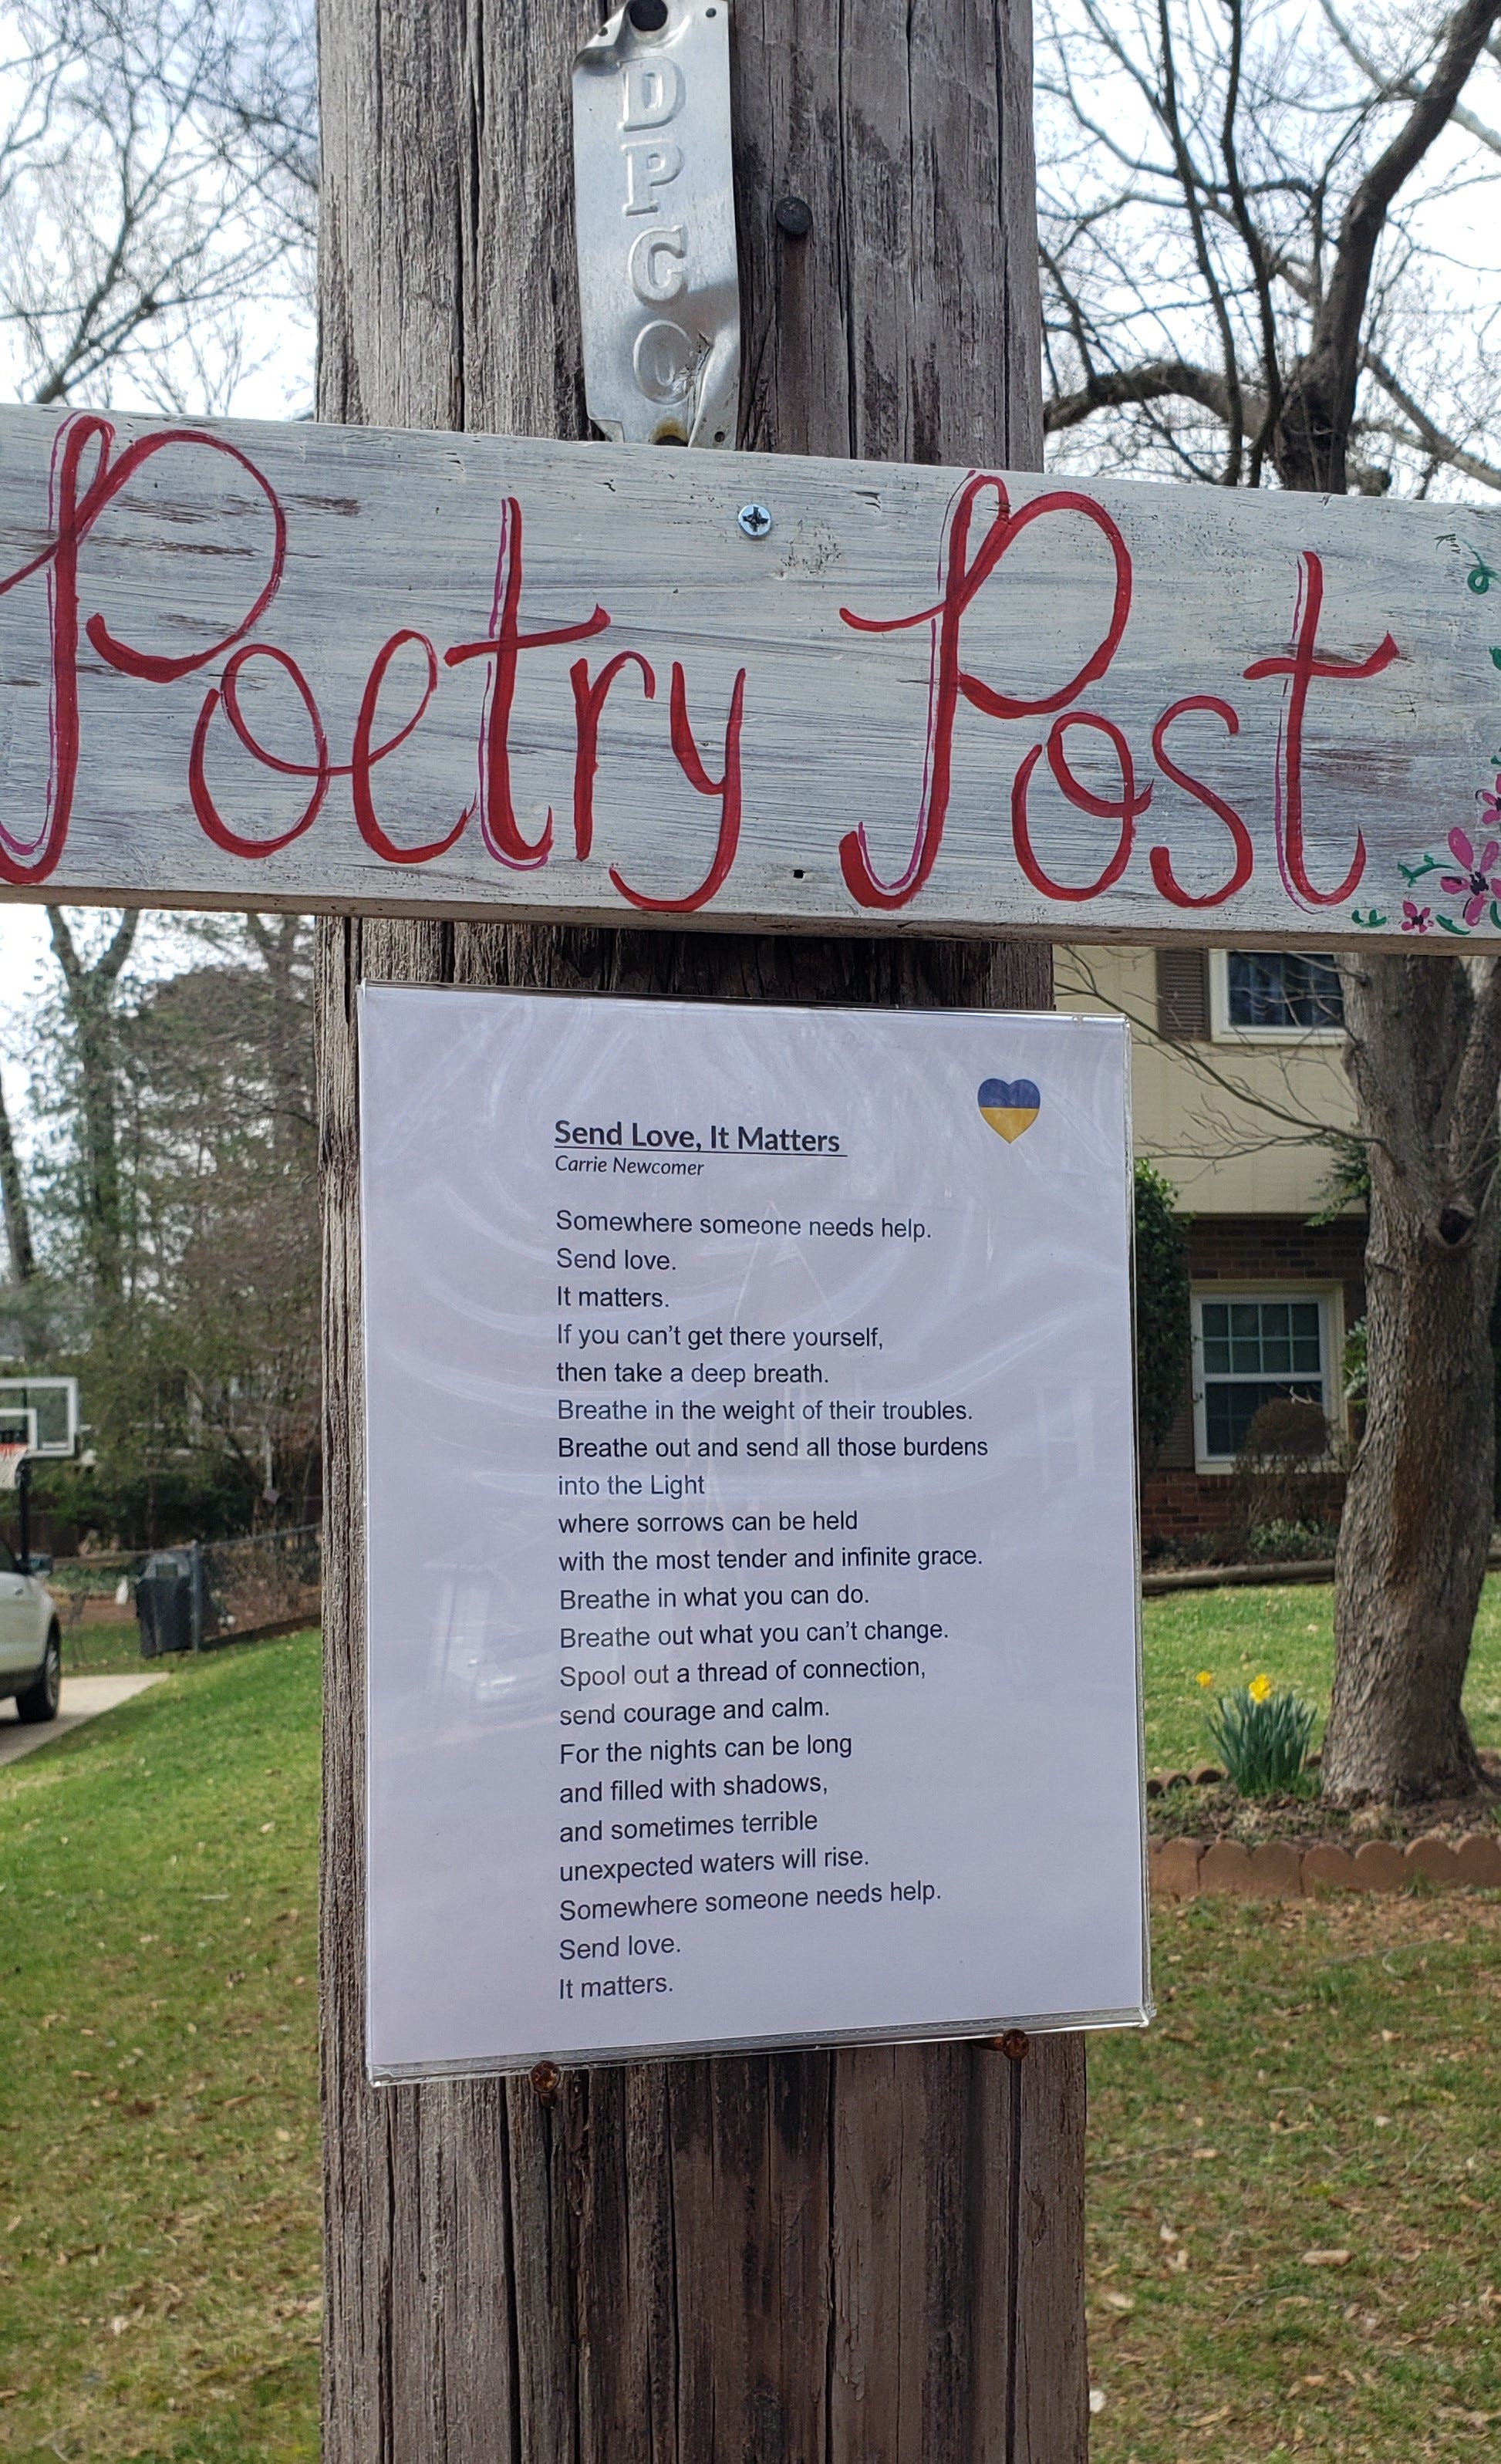 DPCO
Poetry Post
Send Love, It Matters
Carrie Newcomer
Somewhere someone needs help.
Send love.
It matters.
If you can't get there yourself,
then take a deep breath.
Breathe in the weight of their troubles.
Breathe out and send all those burdens
into the Light
where sorrows can be held
with the most tender and infinite grace.
Breathe in what you can do.
Breathe out what you can't change.
Spool out a thread of connection,
send courage and calm.
For the nights can be long
and filled with shadows,
and sometimes terrible
unexpected waters will rise.
Somewhere someone needs help.
Send love.
It matters.